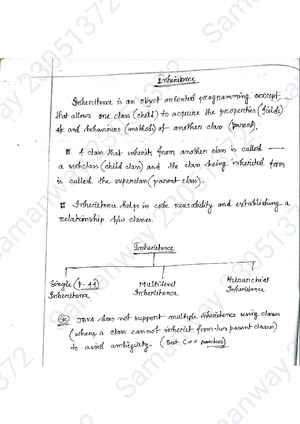 Inheritance
Inheritance is an object oriented programming concept
that allows one class (child) to acquire the properties (fields)
and behaviours (methods) of another class (parent).
A class that inherits from another class is called
a subclass (child class) and the class being inherited from
is called the superclass (parent class).
Inheritance helps in code reusability and establishing a
relationship b/w classes.
Inheritance
Single
Inheritance
Multilevel
Inheritance
Hierarchial
Inheritance
JAVA does not support multiple inheritance using classes
(where a class cannot inherit from two parent classes)
to avoid ambiguity. (But C++
Samanway 23051372